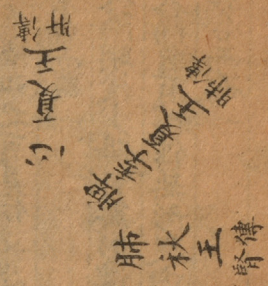 心夏王肝傳
脾季夏王肺傳
肺秋王腎傳